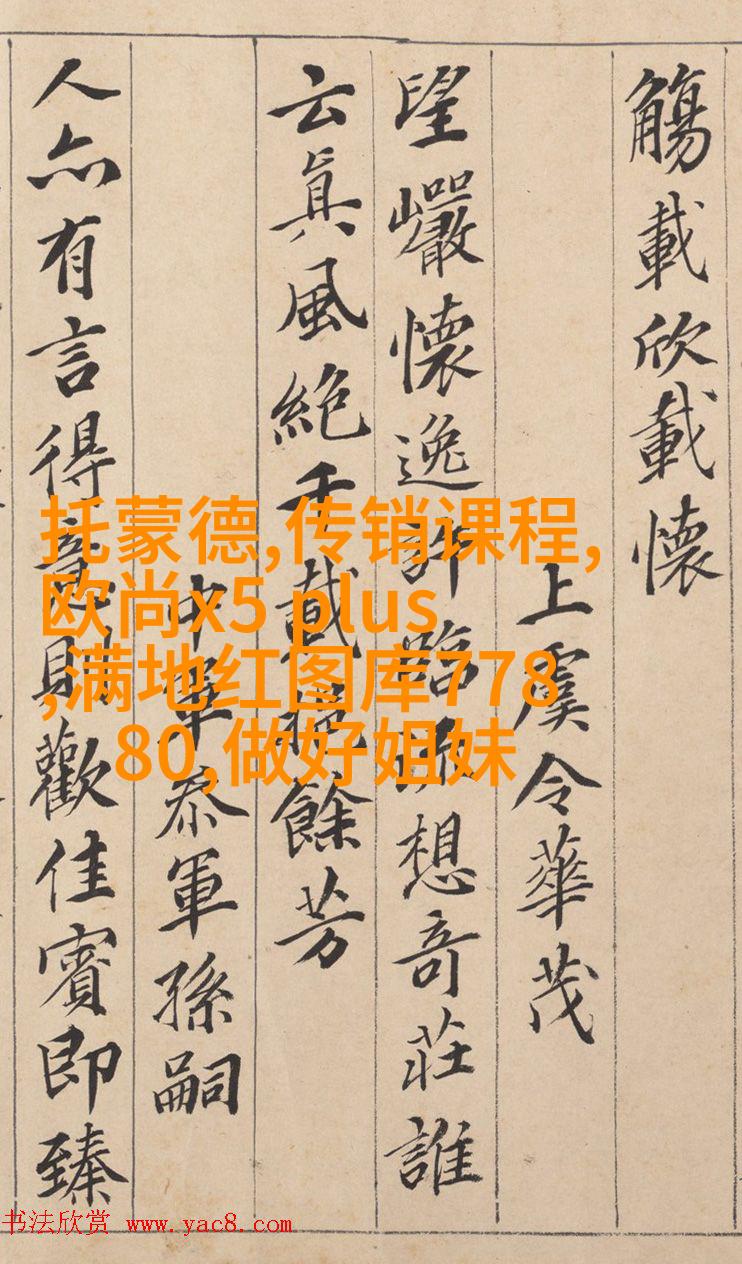 觴載欣載懷
上虞令華茂
望巖懷逸許臨流想奇莊誰
云眞風絶千載挹餘芳
中軍叅軍孫嗣
人亦有言得意則歡佳賓即臻
托蒙德,传销课程,
欧尚x5 plus
,满地红图库778
80,做好姐妹
书法欣赏 www.yac8.com